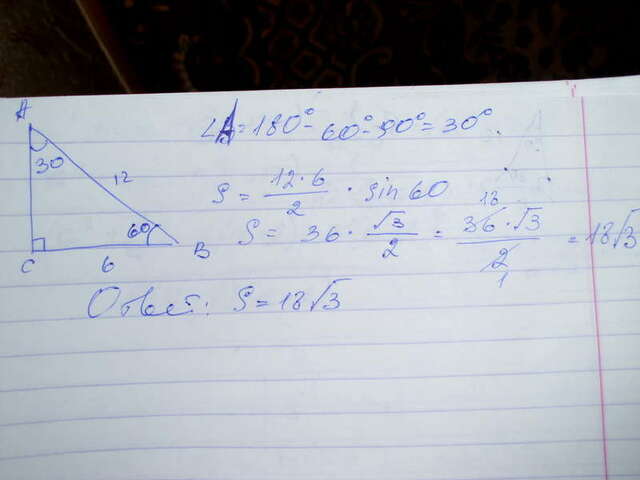 A
30
12
60
C
6
B
∠A = 180° - 60° - 90° = 30°
S = 12·6/2 · sin 60
S = 36 · √3/2 = 36·√3/2 = 18√3
18
1
Ответ: S = 18√3